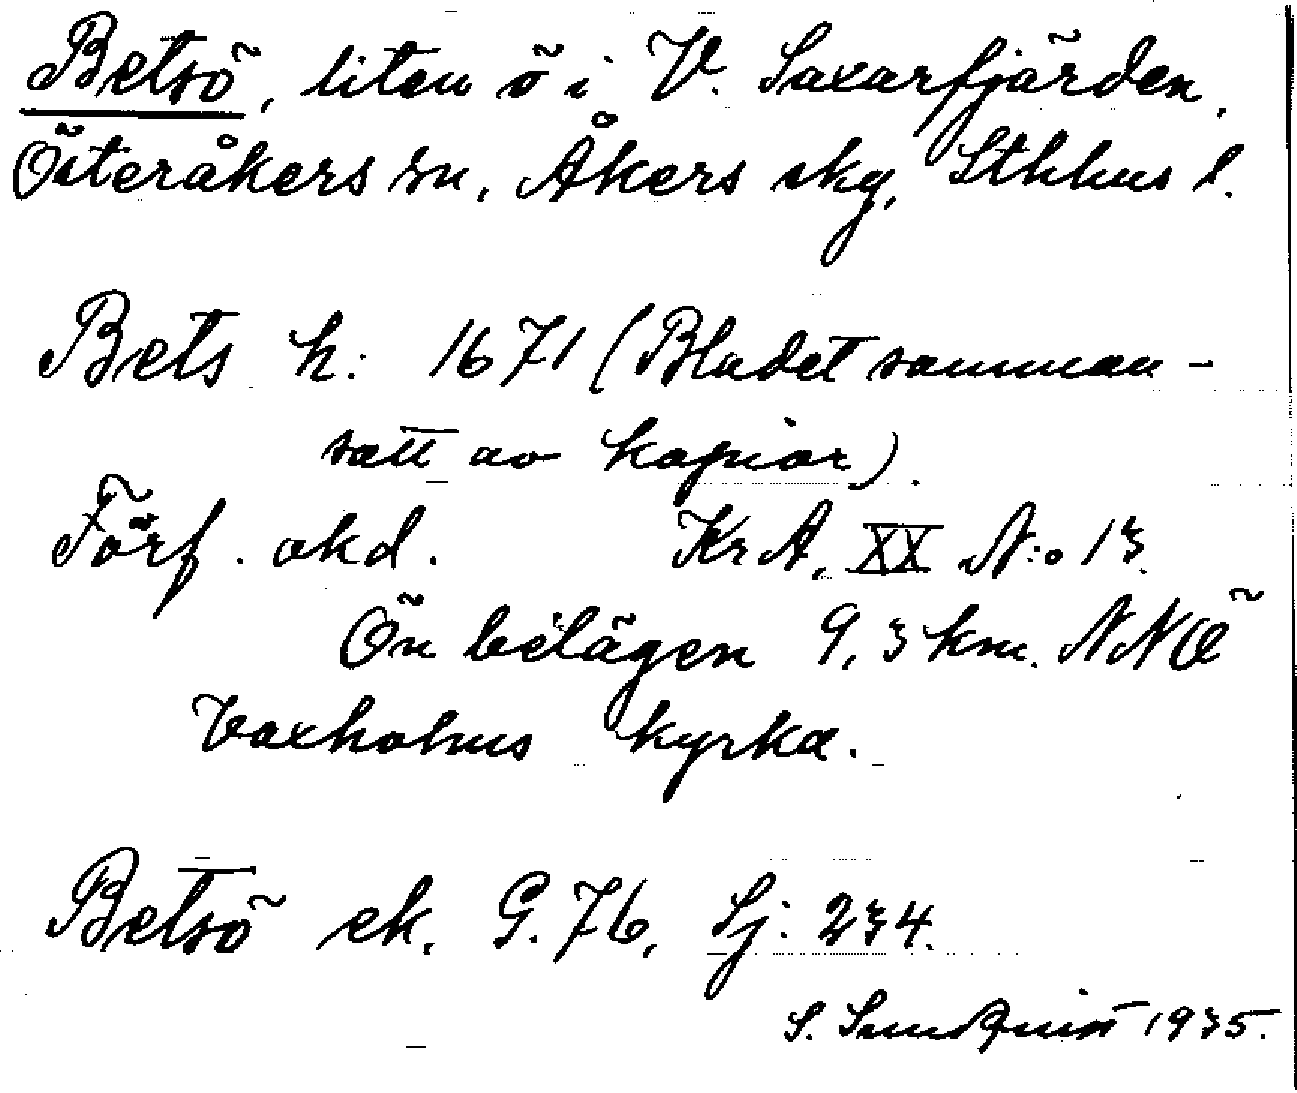 Betsö, liten ö i V. Saxarfjärden,
Österåkers sn, Åkers skg, Sthlms l.
Bets h: 1671 (Bladet samman-
satt av kopior).
Förf. okd. KrA, XX N:o 13.
Ön belägen 9,3 km. NNÖ
Vaxholms kyrka.
Betsö ek. G. 76, Sj: 234.
S. Sundquist 1935.